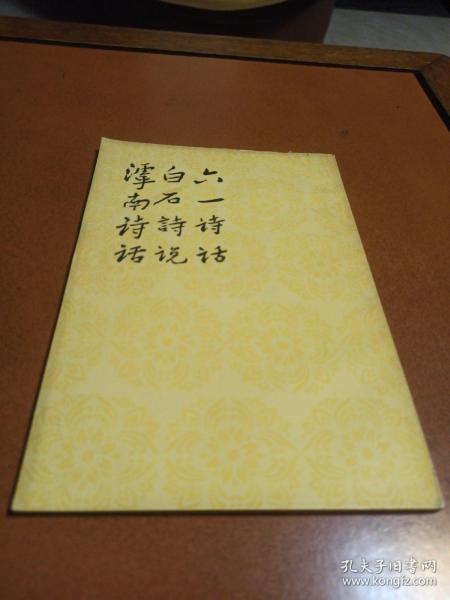 六一诗话
白石詩说
滹南诗话
孔夫子旧书网
www.kongfz.com